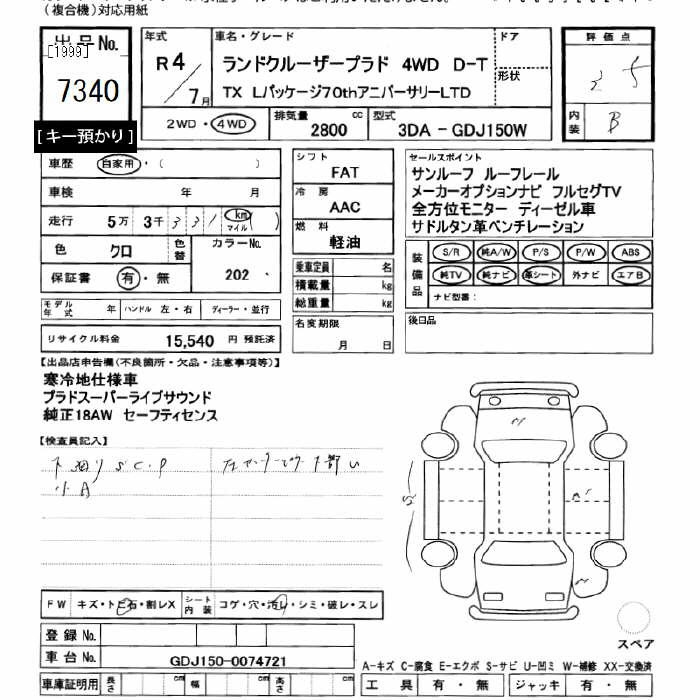 (複合機)対応用紙
出品No.
[1999]
7340
[キー預かり]
年式
R4/7月
車名・グレード
ランドクルーザープラド 4WD D-T
TX Lパッケージ70thアニバーサリーLTD
ドア
形状
2WD・4WD
排気量
2800 cc
型式
3DA - GDJ150W
評価点
内装
B
車歴 自家用・( )
車検 年 月
走行 5万 3千 3 3 1 km マイル ( )
色 クロ 色替
カラーNo.
202
保証書 有・無
モデル年式 年 ハンドル 左・右 ディーラー・並行
リサイクル料金 15,540 円 預託済
シフト
FAT
冷房
AAC
燃料
軽油
乗車定員 名
積載量 kg
総重量 kg
名変期限
月 日
セールスポイント
サンルーフ ルーフレール
メーカーオプションナビ フルセグTV
全方位モニター ディーゼル車
サドルタン革ベンチレーション
装備品
S/R 純A/W P/S P/W ABS
純TV 純ナビ 革シート 外ナビ エアB
ナビ型番:
後日品
【出品店申告欄(不良箇所・欠品・注意事項等)】
寒冷地仕様車
プラドスーパーライブサウンド
純正18AW セーフティセンス
【検査員記入】
下廻りS C.P
小A
FW キズ・トビ石・割レX シート内装 コゲ・穴・汚レ・シミ・破レ・スレ
登録No.
車台No. GDJ150-0074721
車庫証明用 長さ cm 幅 cm 高さ cm
スペア
A-キズ C-腐食 E-エクボ S-サビ U-凹ミ W-補修 XX-交換済
工具 有・無 ジャッキ 有・無